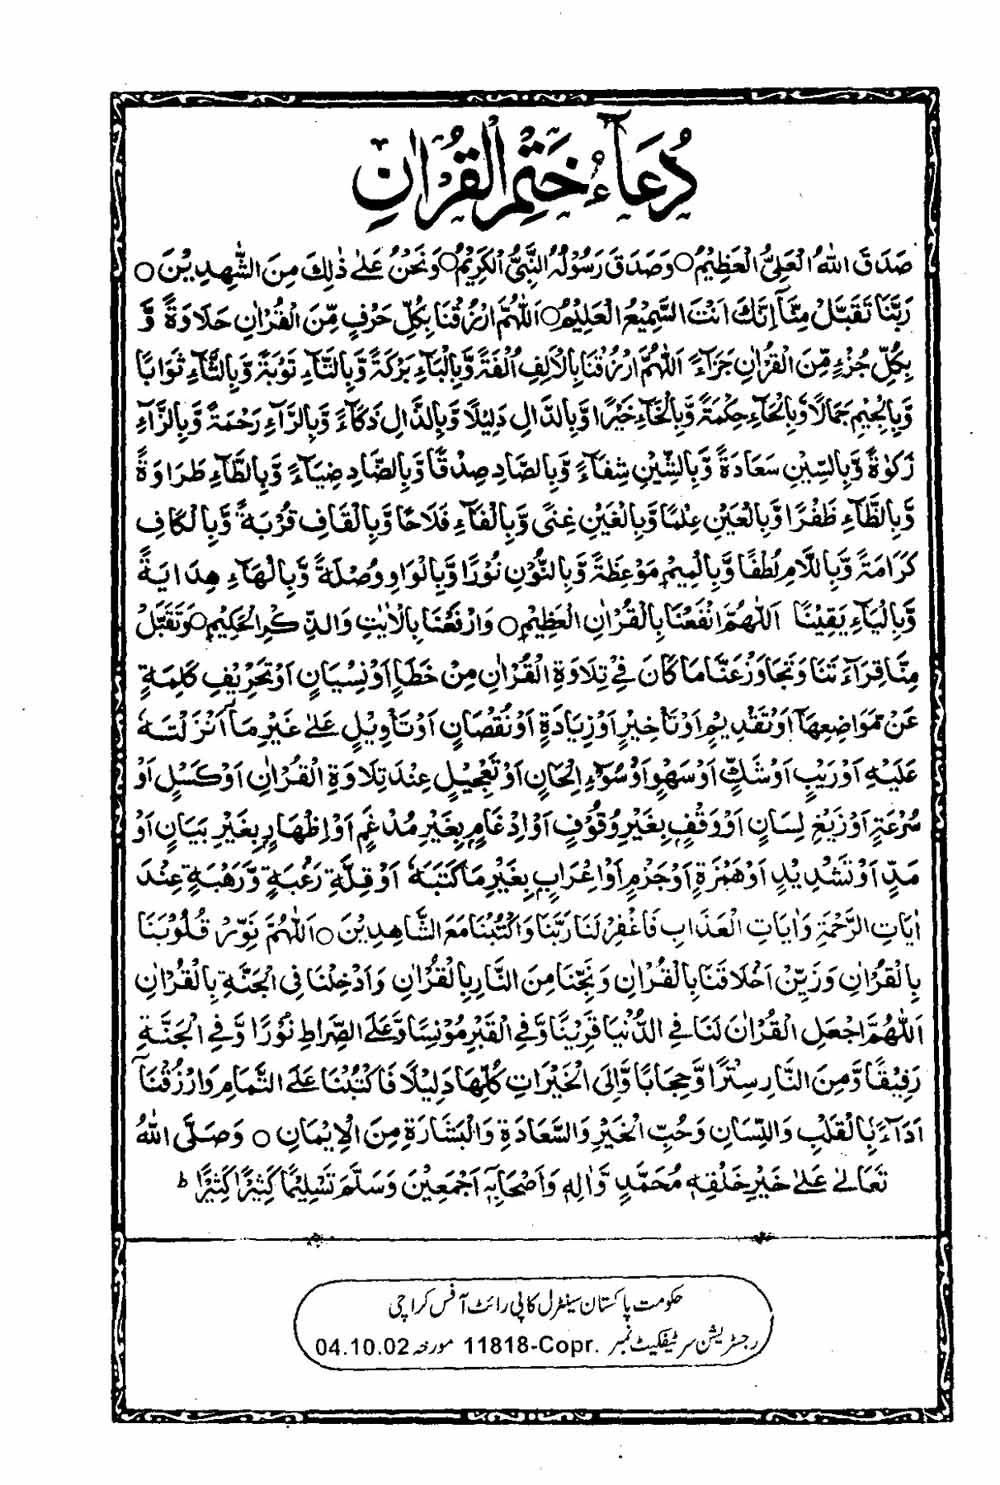 دُعَآءُ خَتْمِ الْقُرْاٰنِ
صَدَقَ اللّٰهُ الْعَلِیُّ الْعَظِیْمُ○ وَصَدَقَ رَسُوْلُهُ النَّبِیُّ الْكَرِیْمُ○ وَنَحْنُ عَلٰی ذٰلِكَ مِنَ الشّٰهِدِیْنَ○
رَبَّنَا تَقَبَّلْ مِنَّآ اِنَّكَ اَنْتَ السَّمِیْعُ الْعَلِیْمُ○ اَللّٰهُمَّ ارْزُقْنَا بِكُلِّ حَرْفٍ مِّنَ الْقُرْاٰنِ حَلَاوَةً وَّ
بِكُلِّ جُزْءٍ مِّنَ الْقُرْاٰنِ جَزَآءً اَللّٰهُمَّ ارْزُقْنَا بِالْاَلِفِ اُلْفَةً وَّبِالْبَآءِ بَرَكَةً وَّبِالتَّآءِ تَوْبَةً وَّبِالثَّآءِ ثَوَابًا
وَّبِالْجِیْمِ جَمَالًا وَّبِالْحَآءِ حِكْمَةً وَّبِالْخَآءِ خَیْرًا وَّبِالدَّالِ دَلِیْلًا وَّبِالذَّالِ ذَكَآءً وَّبِالرَّآءِ رَحْمَةً وَّبِالزَّآءِ
زَكٰوةً وَّبِالسِّیْنِ سَعَادَةً وَّبِالشِّیْنِ شِفَآءً وَّبِالصَّادِ صِدْقًا وَّبِالضَّادِ ضِیَآءً وَّبِالطَّآءِ طَرَاوَةً
وَّبِالظَّآءِ ظَفَرًا وَّبِالْعَیْنِ عِلْمًا وَّبِالْغَیْنِ غِنًی وَّبِالْفَآءِ فَلَاحًا وَّبِالْقَافِ قُرْبَةً وَّبِالْكَافِ
كَرَامَةً وَّبِاللَّامِ لُطْفًا وَّبِالْمِیْمِ مَوْعِظَةً وَّبِالنُّوْنِ نُوْرًا وَّبِالْوَاوِ وُصْلَةً وَّبِالْهَآءِ هِدَایَةً
وَّبِالْیَآءِ یَقِیْنًا اَللّٰهُمَّ انْفَعْنَا بِالْقُرْاٰنِ الْعَظِیْمِ○ وَارْفَعْنَا بِالْاٰیٰتِ وَالذِّكْرِ الْحَكِیْمِ○ وَتَقَبَّلْ
مِنَّا قِرَآءَتَنَا وَتَجَاوَزْ عَنَّا مَا كَانَ فِیْ تِلَاوَةِ الْقُرْاٰنِ مِنْ خَطَاٍ اَوْ نِسْیَانٍ اَوْ تَحْرِیْفِ كَلِمَةٍ
عَنْ مَّوَاضِعِهَآ اَوْ تَقْدِیْمٍ اَوْ تَاْخِیْرٍ اَوْ زِیَادَةٍ اَوْ نُقْصَانٍ اَوْ تَاْوِیْلٍ عَلٰی غَیْرِ مَآ اَنْزَلْتَهٗ
عَلَیْهِ اَوْ رَیْبٍ اَوْ شَكٍّ اَوْ سَهْوٍ اَوْ سُوْٓءِ اِلْحَانٍ اَوْ تَعْجِیْلٍ عِنْدَ تِلَاوَةِ الْقُرْاٰنِ اَوْ كَسَلٍ اَوْ
سُرْعَةٍ اَوْ زَیْغِ لِسَانٍ اَوْ وَقْفٍ بِغَیْرِ وُقُوْفٍ اَوْ اِدْغَامٍ بِغَیْرِ مُدْغَمٍ اَوْ اِظْهَارٍ بِغَیْرِ بَیَانٍ اَوْ
مَدٍّ اَوْ تَشْدِیْدٍ اَوْ هَمْزَةٍ اَوْ جَزْمٍ اَوْ اِعْرَابٍ بِغَیْرِ مَا كَتَبَهٗ اَوْ قِلَّةِ رَغْبَةٍ وَّرَهْبَةٍ عِنْدَ
اٰیَاتِ الرَّحْمَةِ وَاٰیَاتِ الْعَذَابِ فَاغْفِرْ لَنَا رَبَّنَا وَاكْتُبْنَا مَعَ الشَّاهِدِیْنَ○ اَللّٰهُمَّ نَوِّرْ قُلُوْبَنَا
بِالْقُرْاٰنِ وَزَیِّنْ اَخْلَاقَنَا بِالْقُرْاٰنِ وَنَجِّنَا مِنَ النَّارِ بِالْقُرْاٰنِ وَاَدْخِلْنَا فِی الْجَنَّةِ بِالْقُرْاٰنِ
اَللّٰهُمَّ اجْعَلِ الْقُرْاٰنَ لَنَا فِی الدُّنْیَا قَرِیْنًا وَّفِی الْقَبْرِ مُوْنِسًا وَّعَلَی الصِّرَاطِ نُوْرًا وَّفِی الْجَنَّةِ
رَفِیْقًا وَّمِنَ النَّارِ سِتْرًا وَّحِجَابًا وَّاِلَی الْخَیْرَاتِ كُلِّهَا دَلِیْلًا فَاكْتُبْنَا عَلَی التَّمَامِ وَارْزُقْنَآ
اَدَآءً بِالْقَلْبِ وَاللِّسَانِ وَحُبِّ الْخَیْرِ وَالسَّعَادَةِ وَالْبَشَارَةِ مِنَ الْاِیْمَانِ○ وَصَلَّی اللّٰهُ
تَعَالٰی عَلٰی خَیْرِ خَلْقِهٖ مُحَمَّدٍ وَّاٰلِهٖ وَاَصْحَابِهٖٓ اَجْمَعِیْنَ وَسَلَّمَ تَسْلِیْمًا كَثِیْرًا كَثِیْرًا ط
حکومت پاکستان سینٹرل کاپی رائٹ آفس کراچی
رجسٹریشن سرٹیفکیٹ نمبر 11818-Copr. مورخہ 04.10.02